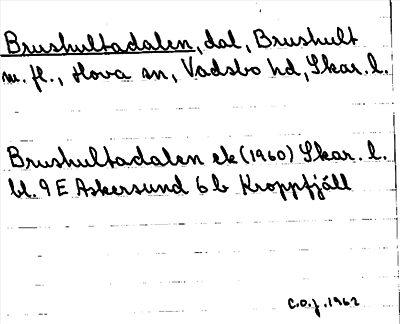 Brushultadalen, dal, Brushult
m. fl., Hova sn, Vadsbo hd, Skar. l.
Brushultadalen ek (1960) Skar. l.
bl. 9 E Askersund 6 b Kroppfjäll
C.O.J. 1962